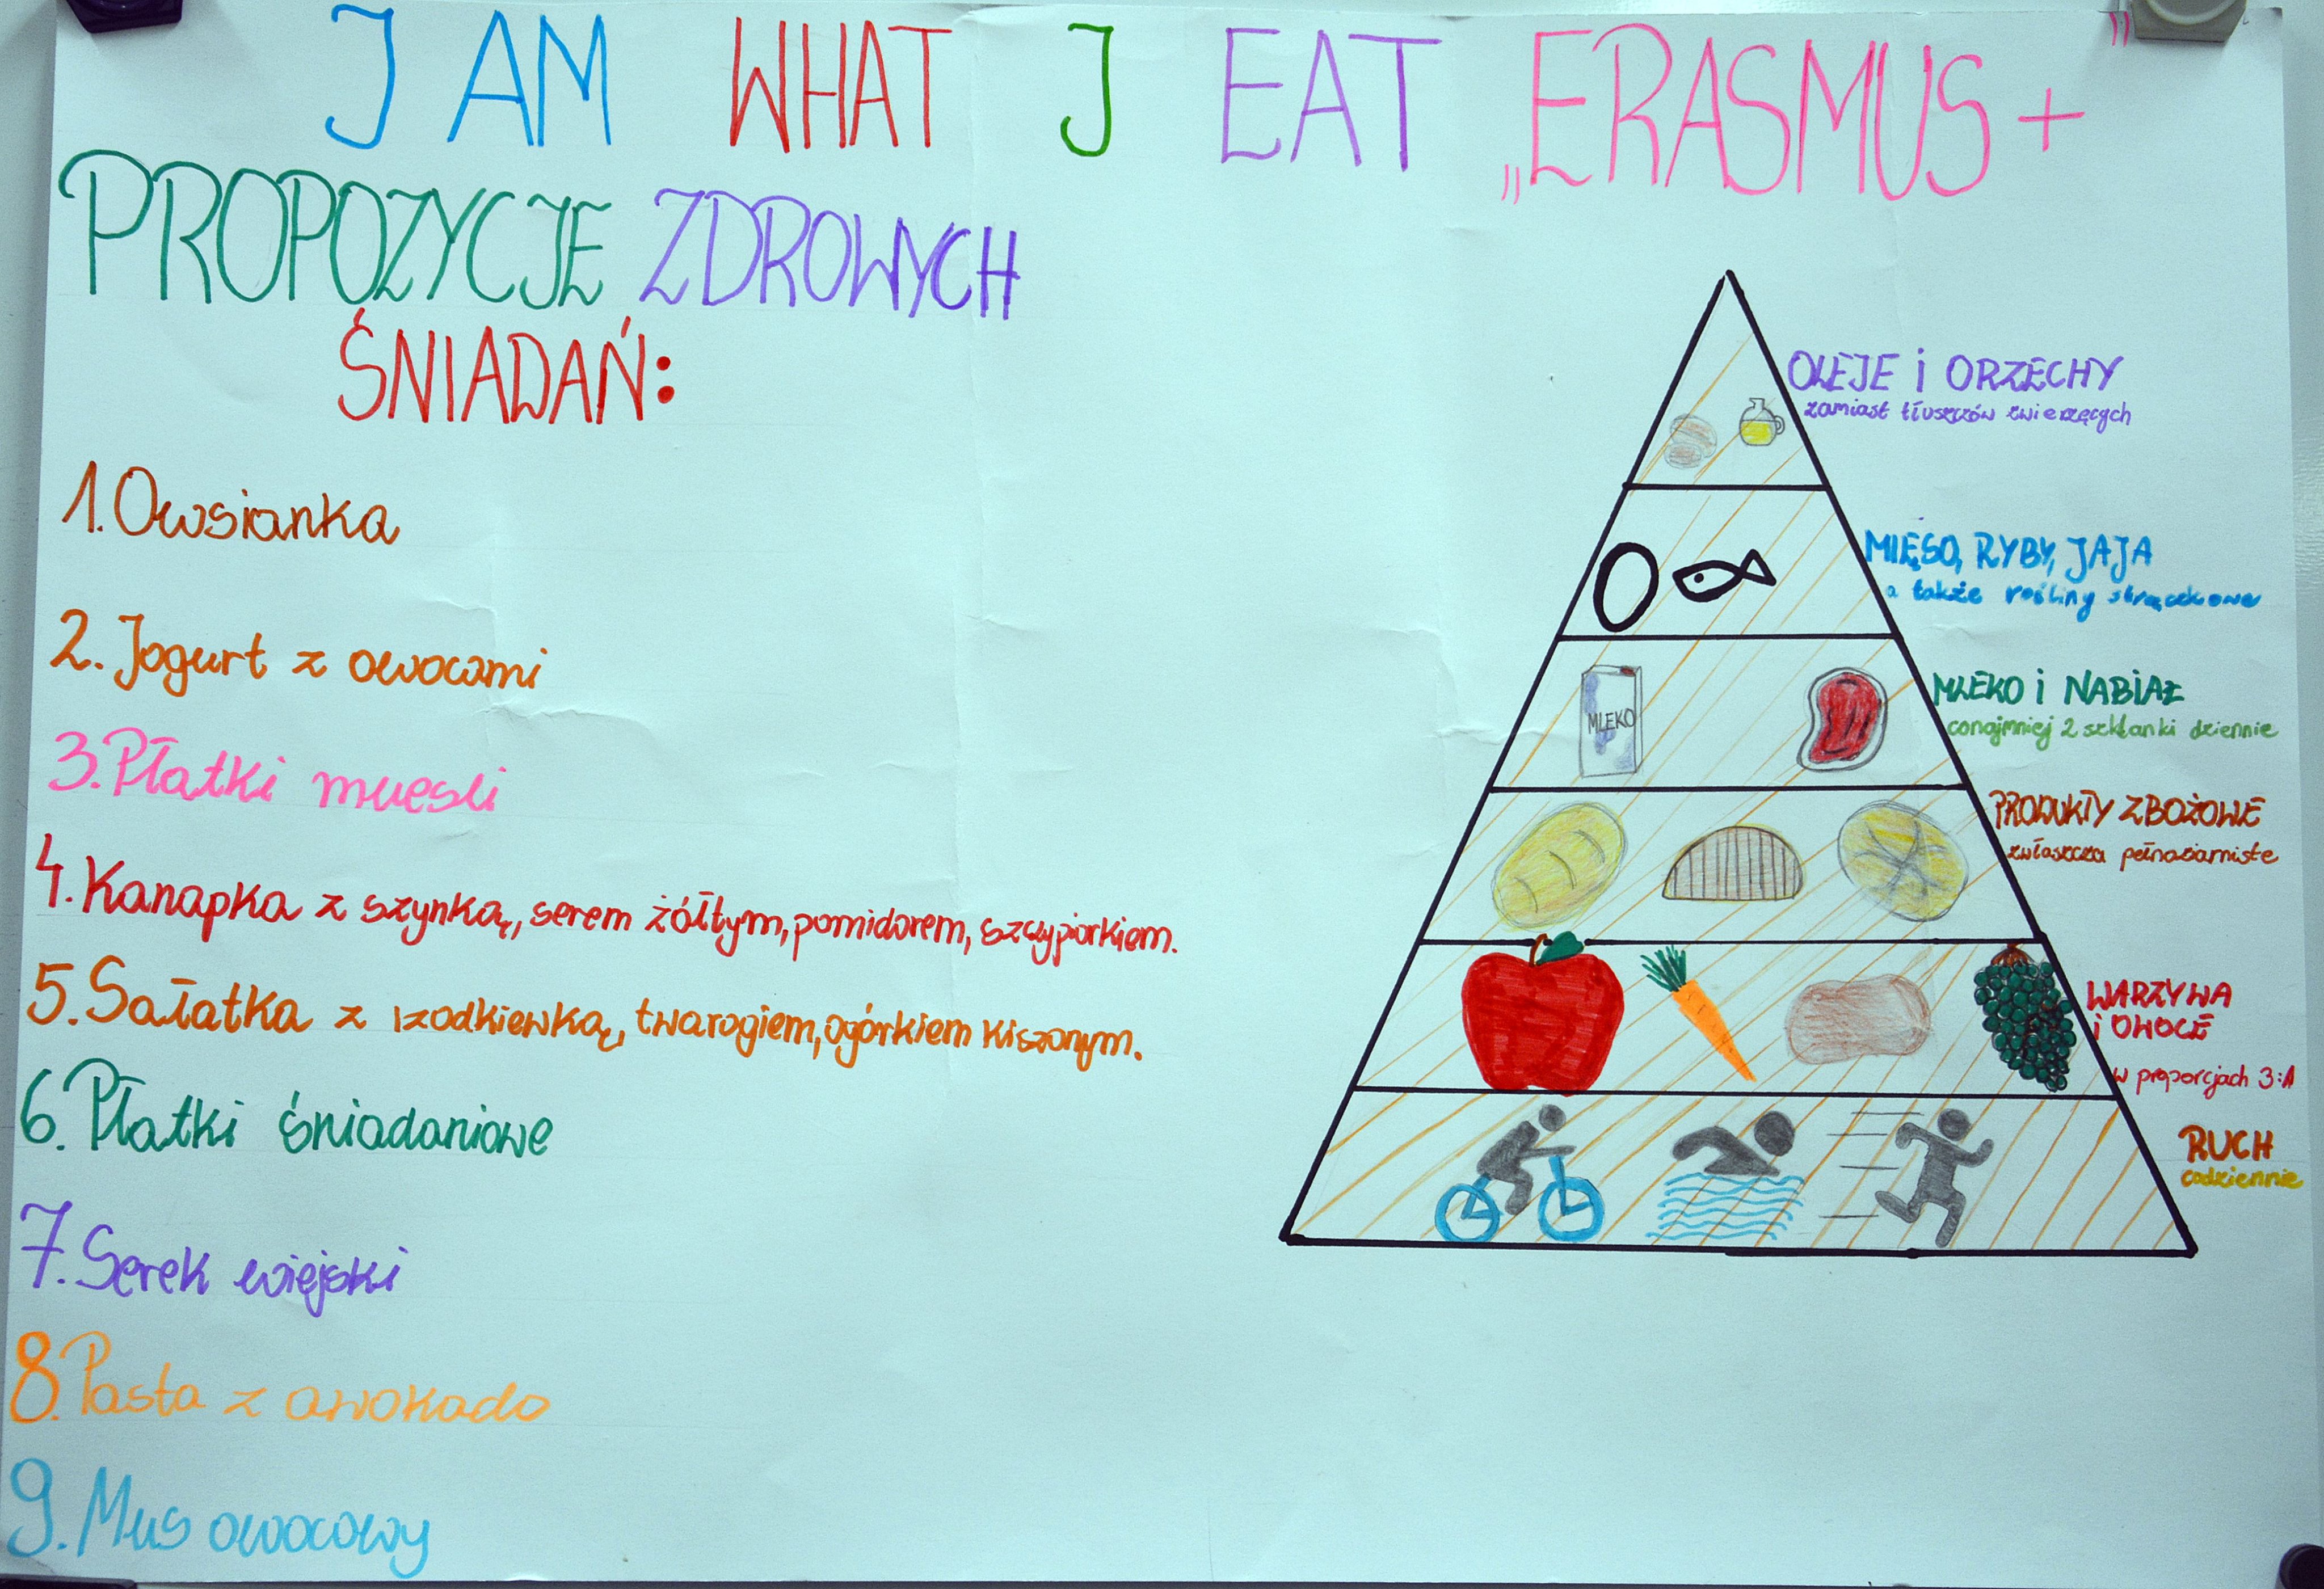 J AM WHAT J EAT „ERASMUS +"
PROPOZYCJE ZDROWYCH
ŚNIADAŃ:
1. Owsianka
2. Jogurt z owocami
3. Płatki muesli
4. Kanapka z szynką, serem żółtym, pomidorem, szczypiorkiem.
5. Sałatka z rzodkiewką, twarogiem, ogórkiem kiszonym.
6. Płatki śniadaniowe
7. Serek wiejski
8. Pasta z awokado
9. Mus owocowy
OLEJE i ORZECHY
zamiast tłuszczów zwierzęcych
MIĘSO, RYBY, JAJA
a także rośliny strączkowe
MLEKO
MLEKO i NABIAŁ
conajmniej 2 szklanki dziennie
PRODUKTY ZBOŻOWE
zwłaszcza pełnoziarniste
WARZYWA
i OWOCE
w proporcjach 3:1
RUCH
codziennie